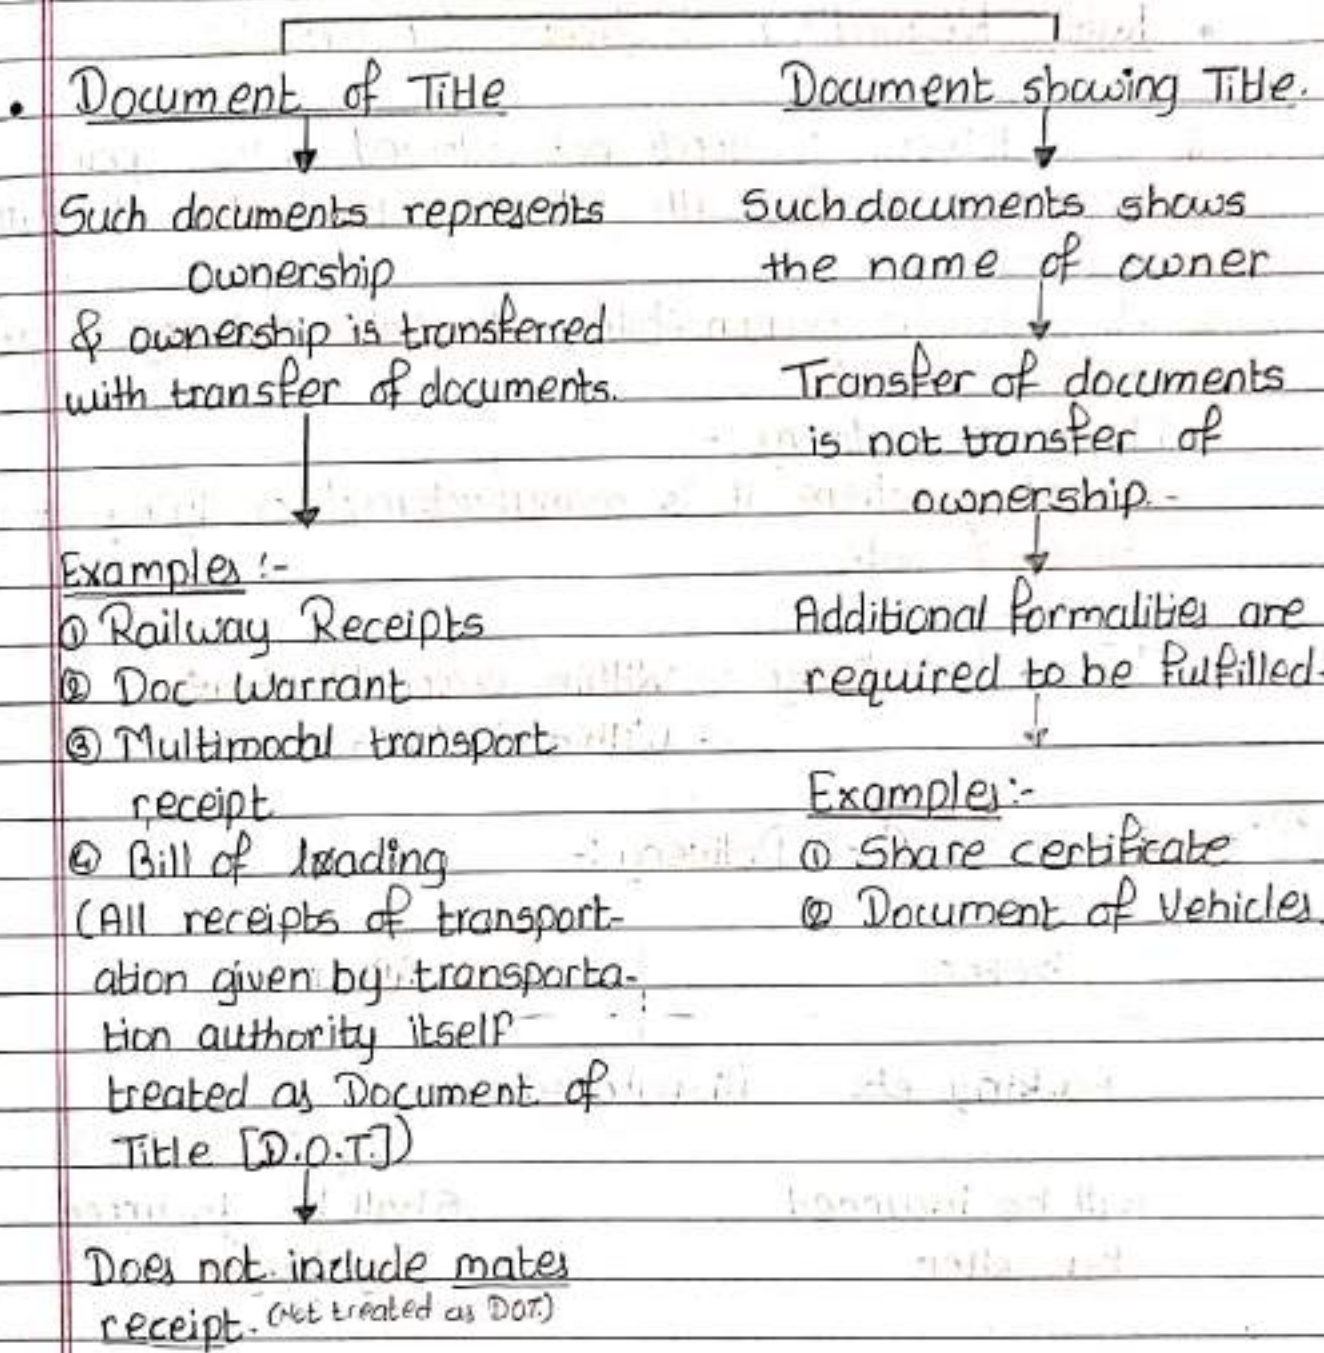 • Document of Title
Such documents represents
ownership
& ownership is transferred
with transfer of documents.
Examples :-
① Railway Receipts
② Doc Warrant
③ Multimodal transport
receipt
④ Bill of loading
(All receipts of transport-
ation given by transporta-
tion authority itself
treated as Document of
Title [D.O.T.])
Does not include mates
receipt. (Not treated as DOT.)
Document showing Title.
Such documents shows
the name of owner
Transfer of documents
is not transfer of
ownership.-
Additional formalities are
required to be fulfilled.
Examples:-
① Share certificate
② Document of Vehicles.